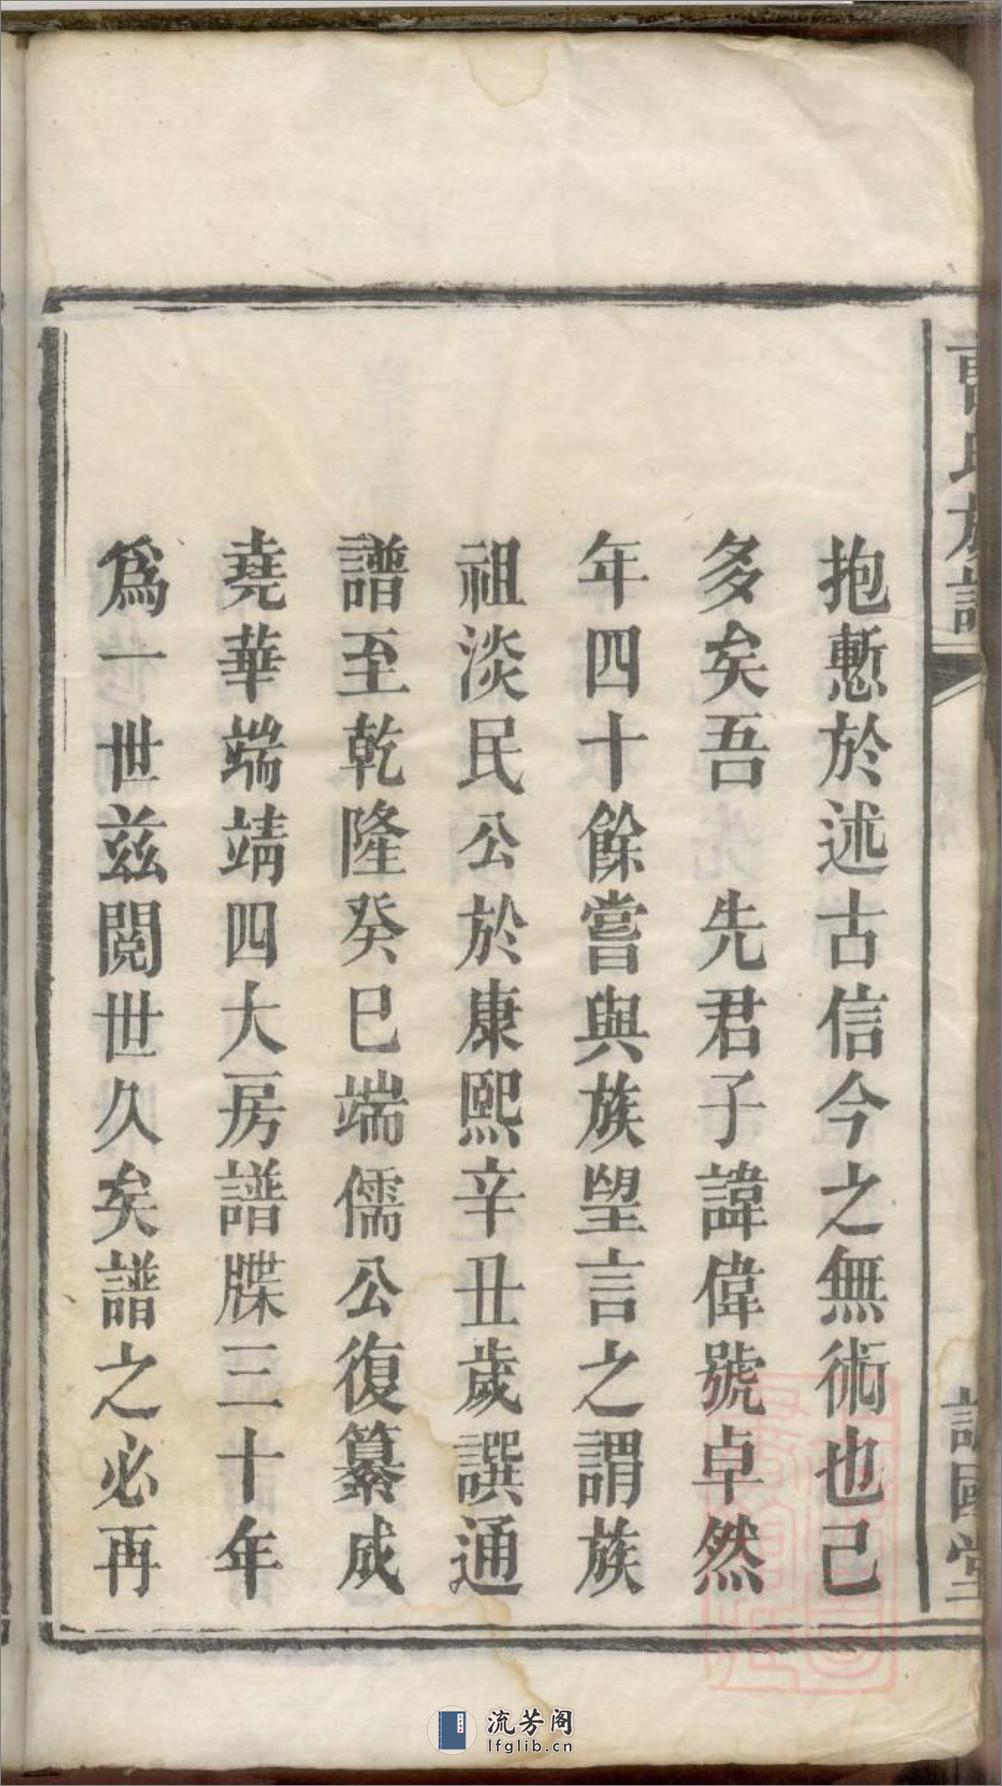 曹氏族譜
抱慙於述古信今之無術也己
多矣吾　先君子諱偉號卓然
年四十餘嘗與族朢言之謂族
祖淡民公於康熙辛丑歲譔通
譜至乾隆癸巳端儒公復纂成
堯華端靖四大房譜牒三十年
爲一世茲閱世久矣譜之必再
流芳阁
lfglib.cn